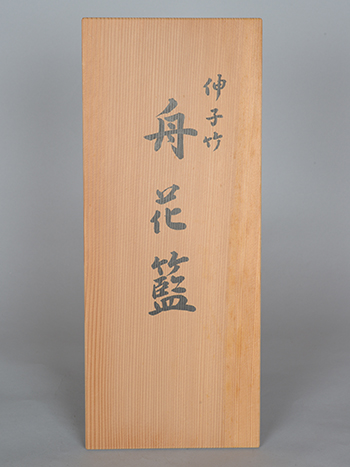 伸子竹
舟花籃